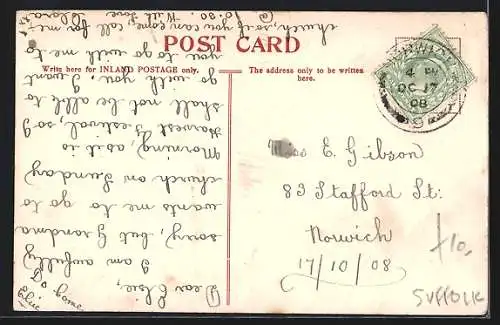 POST CARD
Write here for INLAND POSTAGE only.
The address only to be written
here.
NORWICH
4 PM
OC 17
08
Miss E. Gibson
83 Stafford St:
Norwich
17/10/08
£10.
SUFFOLK
Dear Elsie,
I am awfully
sorry, but Grandma
wants me to go to
church on Sunday
Morning, as it is
Harvest Festival, so I
shall not be able to
go with you, I want
you to go with me to
church, so if you can come, call for me
@ 10.30 With love
Clara